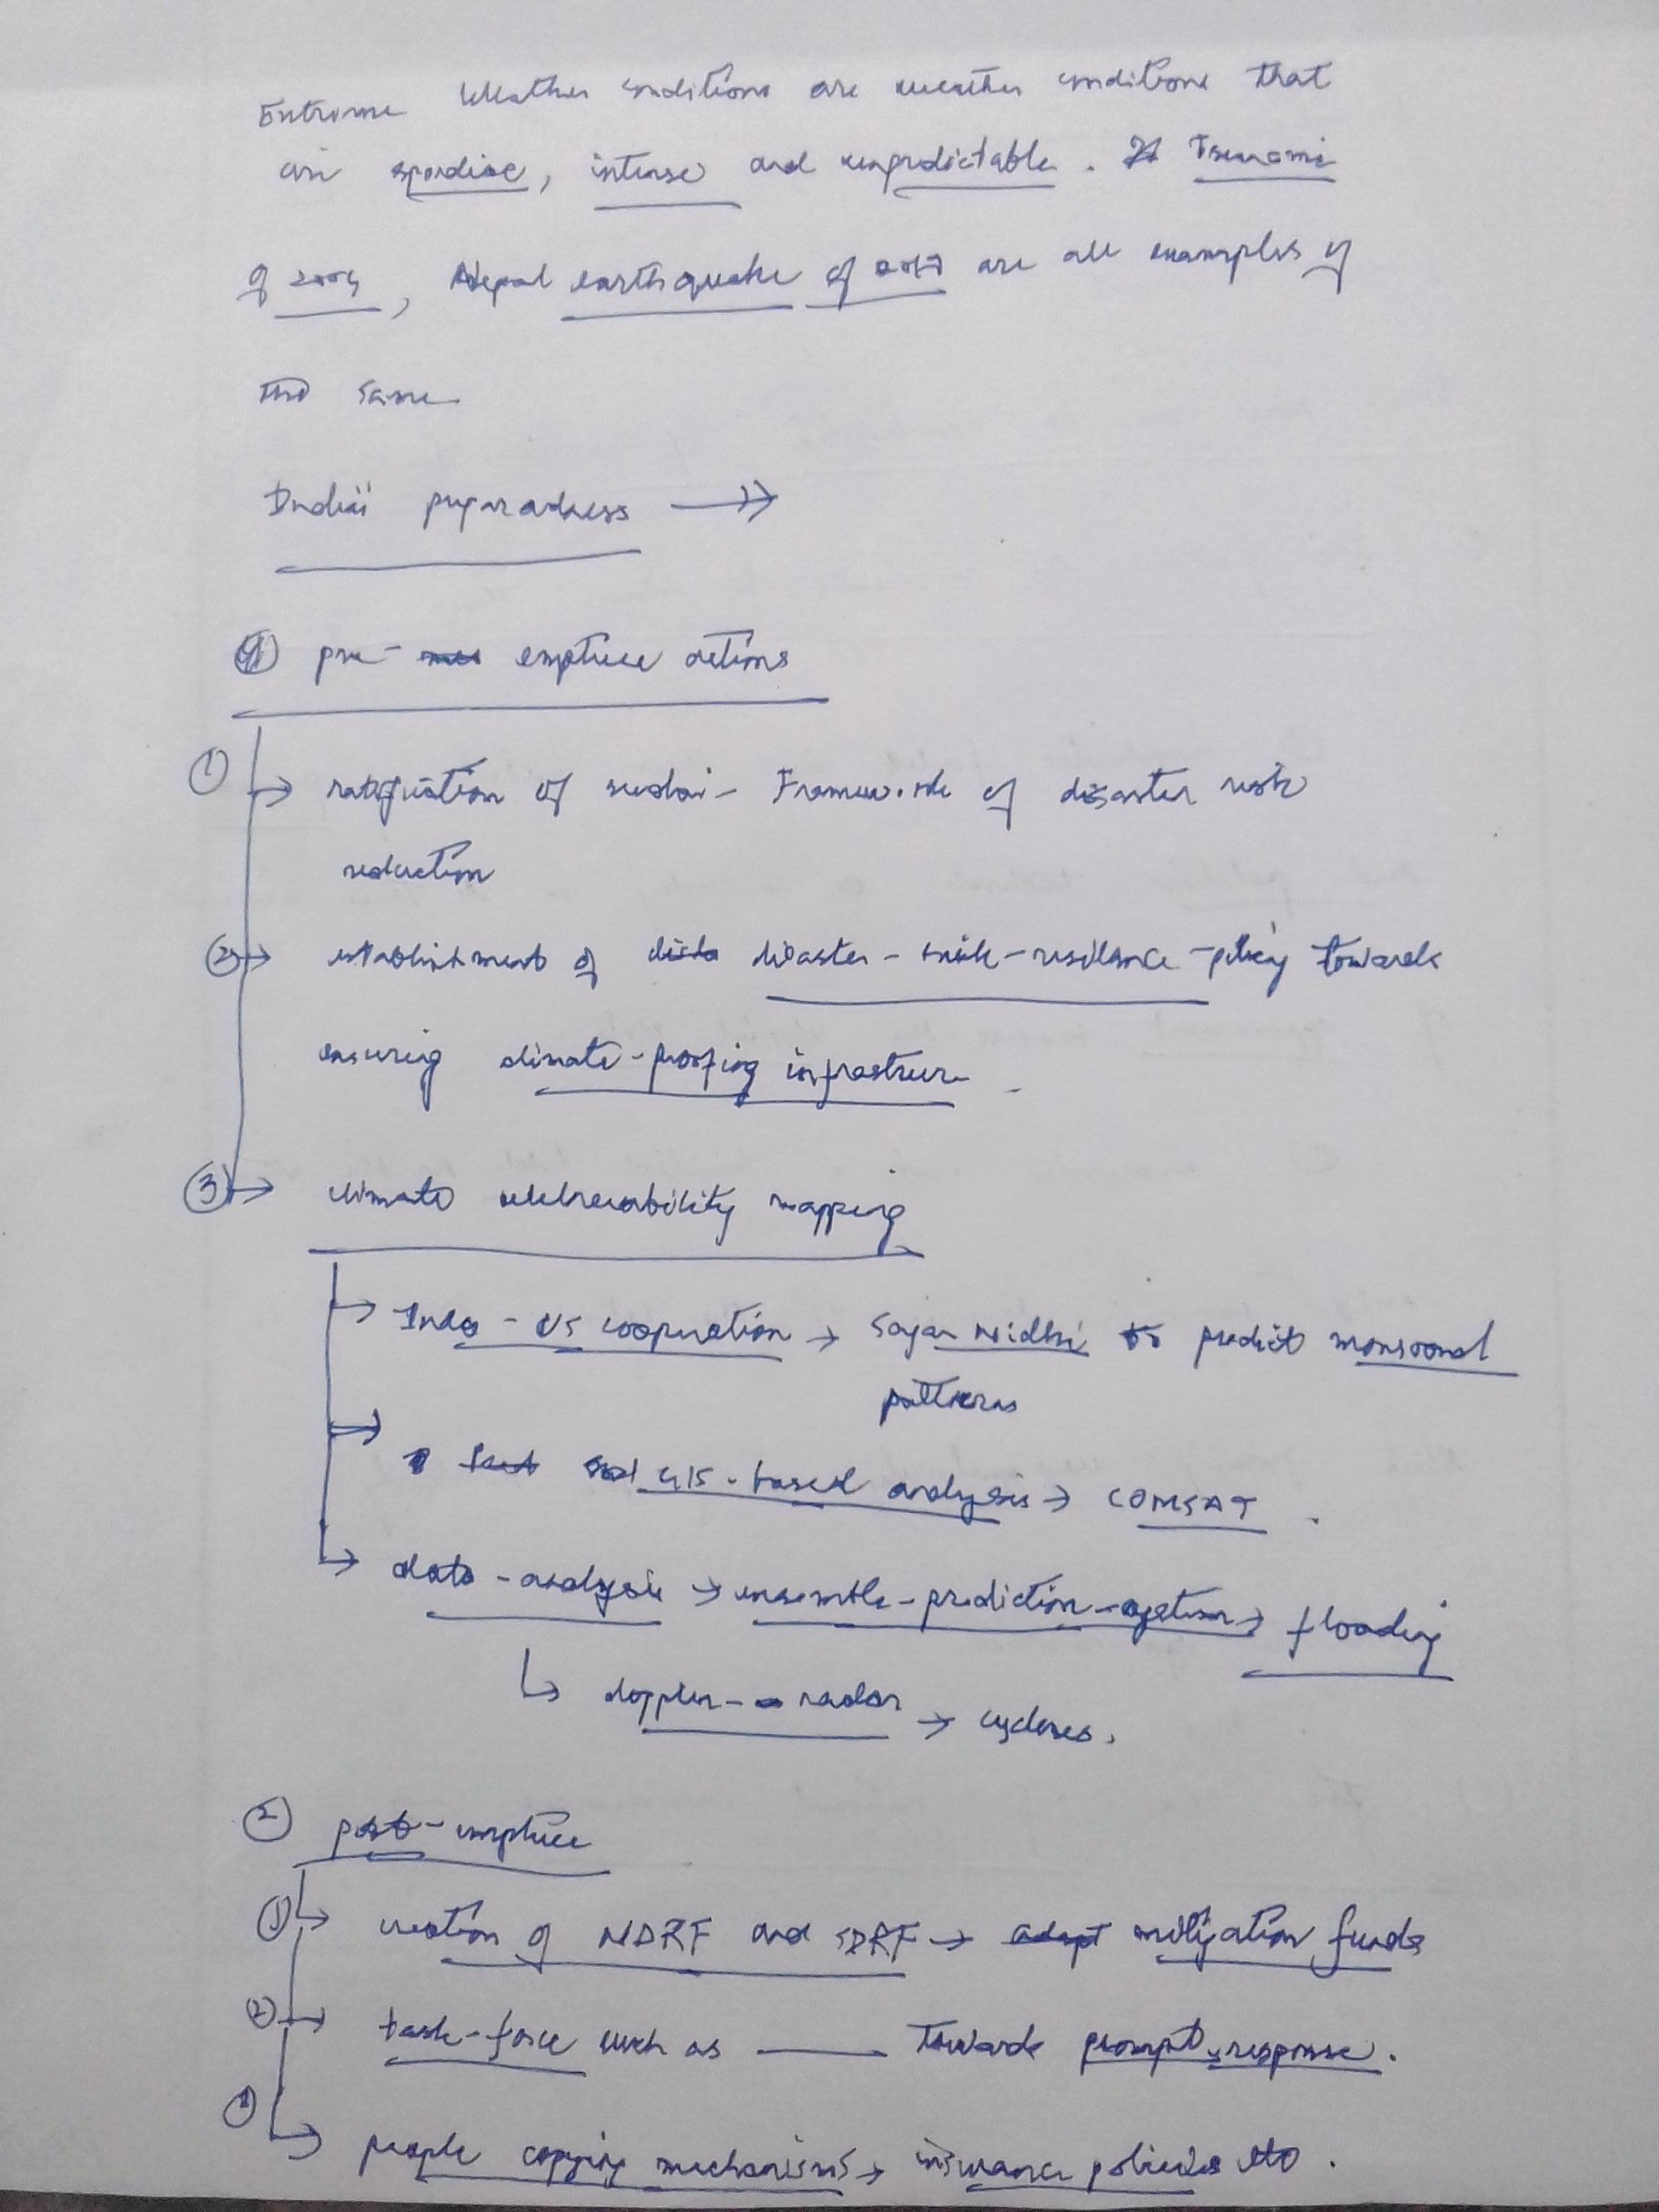 Extreme Weather conditions are weather conditions that
are sporadic, intense and unpredictable. Tsunami
of 2004, Nepal earthquake of are all examples of
the same
India's preparadness →
① pre- emptive actions
① → ratification of sendai - Framework of disaster risk
reduction
② → establishment of disaster - risk - resilance - policy towards
ensuring climate - proofing infrastrure
③ → climate vulnerability mapping
→ Indo - US cooperation → Sagar Nidhi to predict monsoonal
patterns
→ GIS - based analysis → COMSAT .
→ data - analysis → ensemble - prediction - system → flooding
↳ doppler - radar → cyclones.
② post - emptive
① → creation of NDRF and SDRF → mitigation funds
② → task - force such as ——— towards prompt response.
③ → people copying mechanisms → insurance policies etc .